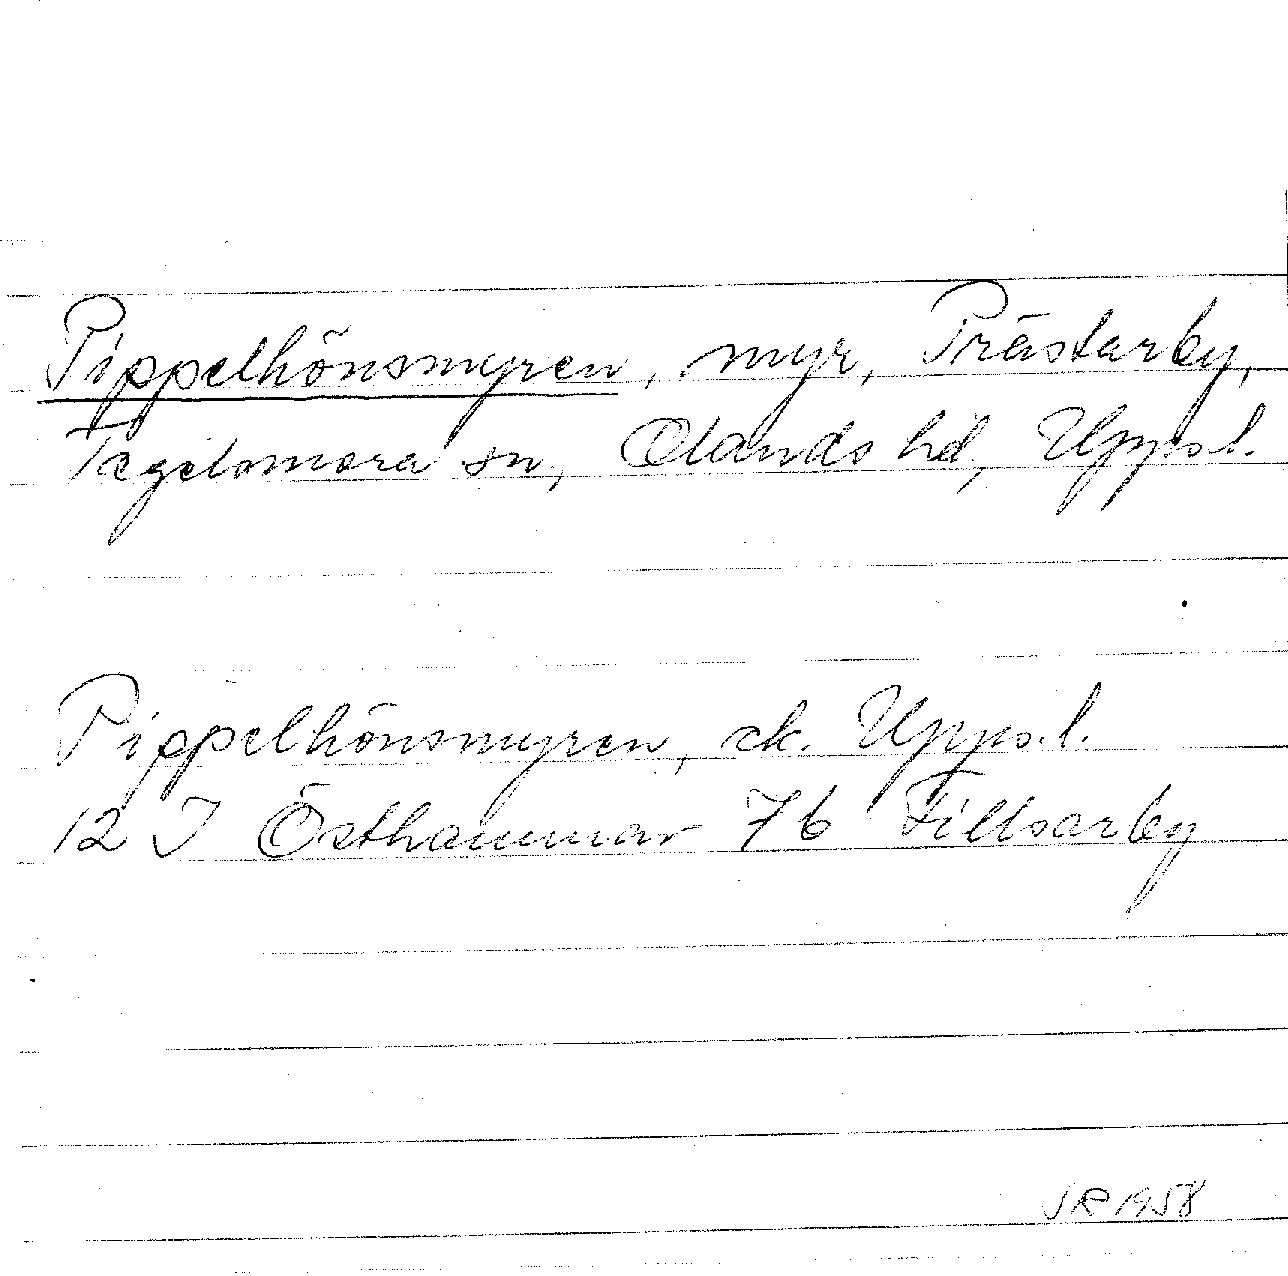 Pippelhönsmyren, myr, Prästarby,
Tegelsmora sn, Olands hd, Uppsl.
Pippelhönsmyren, ek. Uppsl.
12 I Östhammar 7b Fillsarby
SR 1958